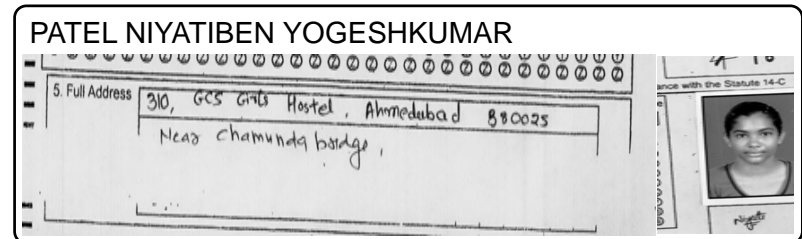 PATEL NIYATIBEN YOGESHKUMAR
5. Full Address
310, GCS Girls Hostel, Ahmedabad 380025
Near Chamunda bridge,
ance with the Statute 14-C
Niyati